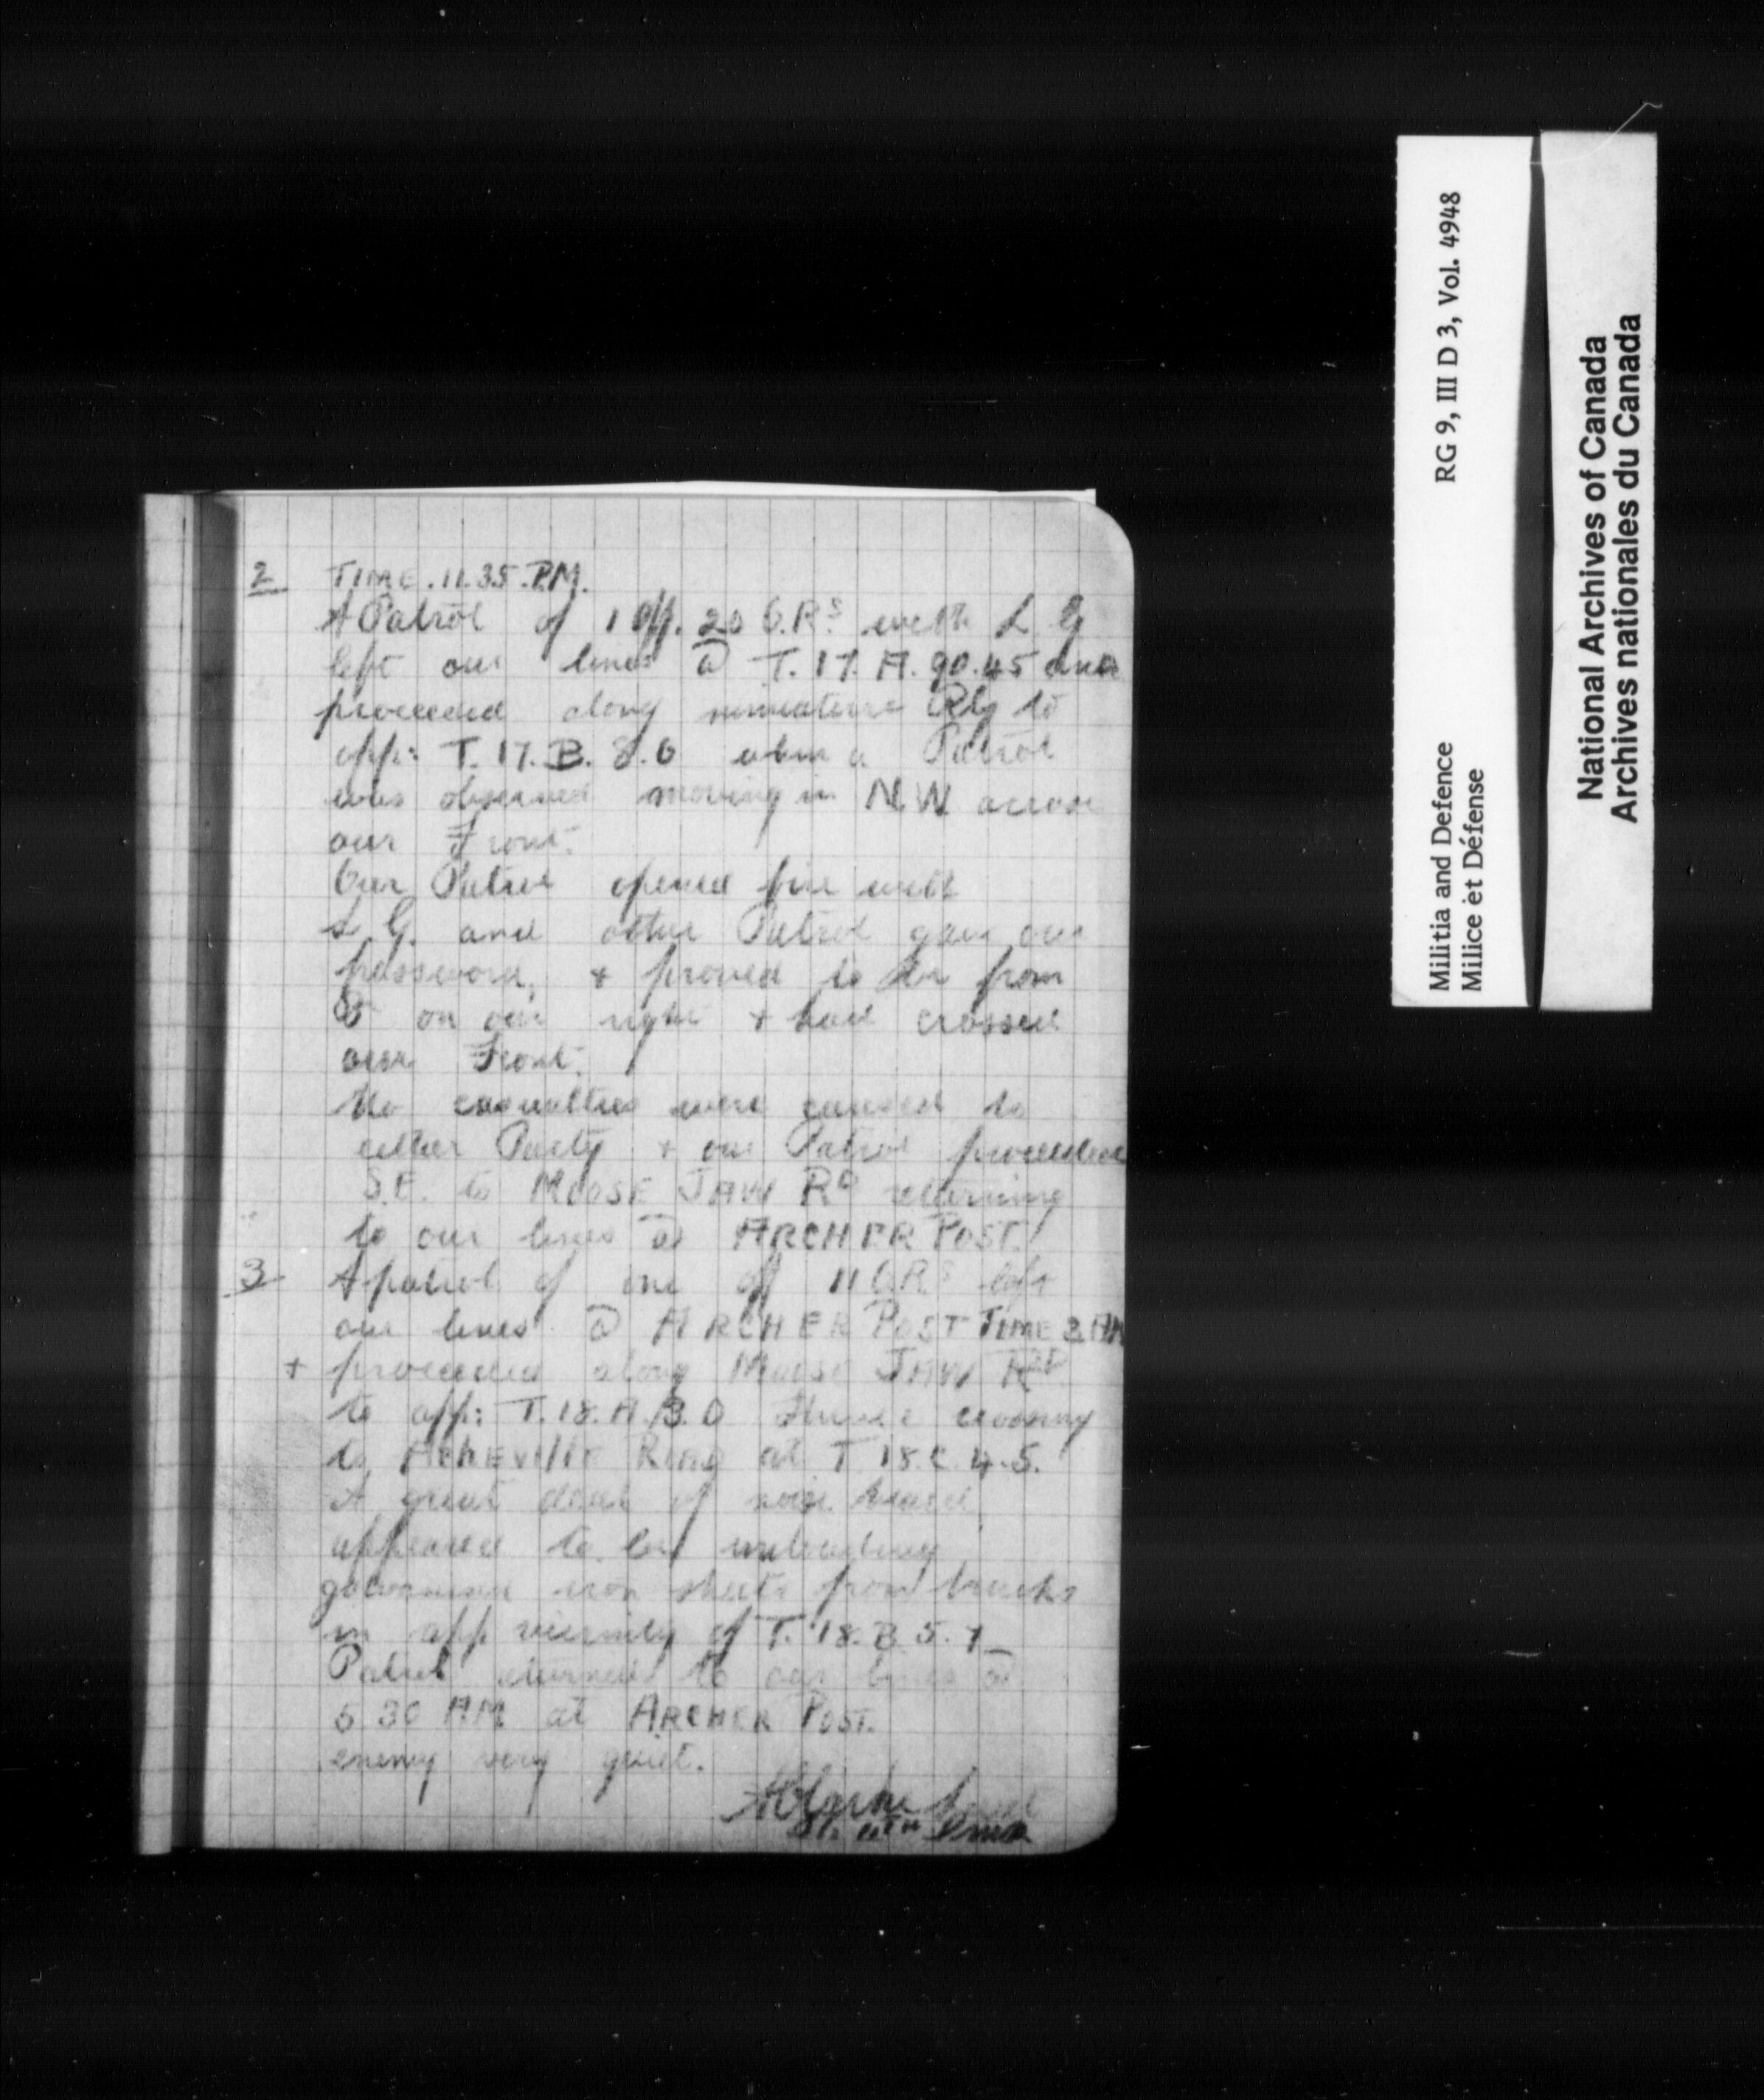 2 TIME. 11.35. P.M.
A Patrol of 1 Off. 20 O.Rs with L G
left our lines @ T. 17. A. 90.45 and
proceeded along miniature Rly to
app: T. 17. B. 8.0 when a Patrol
was observed moving in N.W across
our Front.
Our Patrol opened fire with
L.G. and other Patrol gave our
password, + proved to be from
on our right + had crossed
our Front.
No casualties were caused to
either Party + our Patrol proceeded
S.E. to MOOSE JAW RD returning
to our lines @ ARCHER POST.
3 A patrol of one off 11 O.Rs left
our lines @ ARCHER POST TIME 3. AM
+ proceeded along MOOSE JAW RD
to app: T. 18. A. 3. 0 thence crossing
to ACHEVILLE ROAD at T 18. C. 4. 5.
A great deal of noise heard
appeared to be unloading
iron sheets from trucks
in app vicinity of T. 18. B. 5. 7
Patrol returned to our lines @
5 30 AM at ARCHER POST.
enemy very quiet.
Militia and Defence RG 9, III D 3, Vol. 4948
Milice et Défense
National Archives of Canada
Archives nationales du Canada